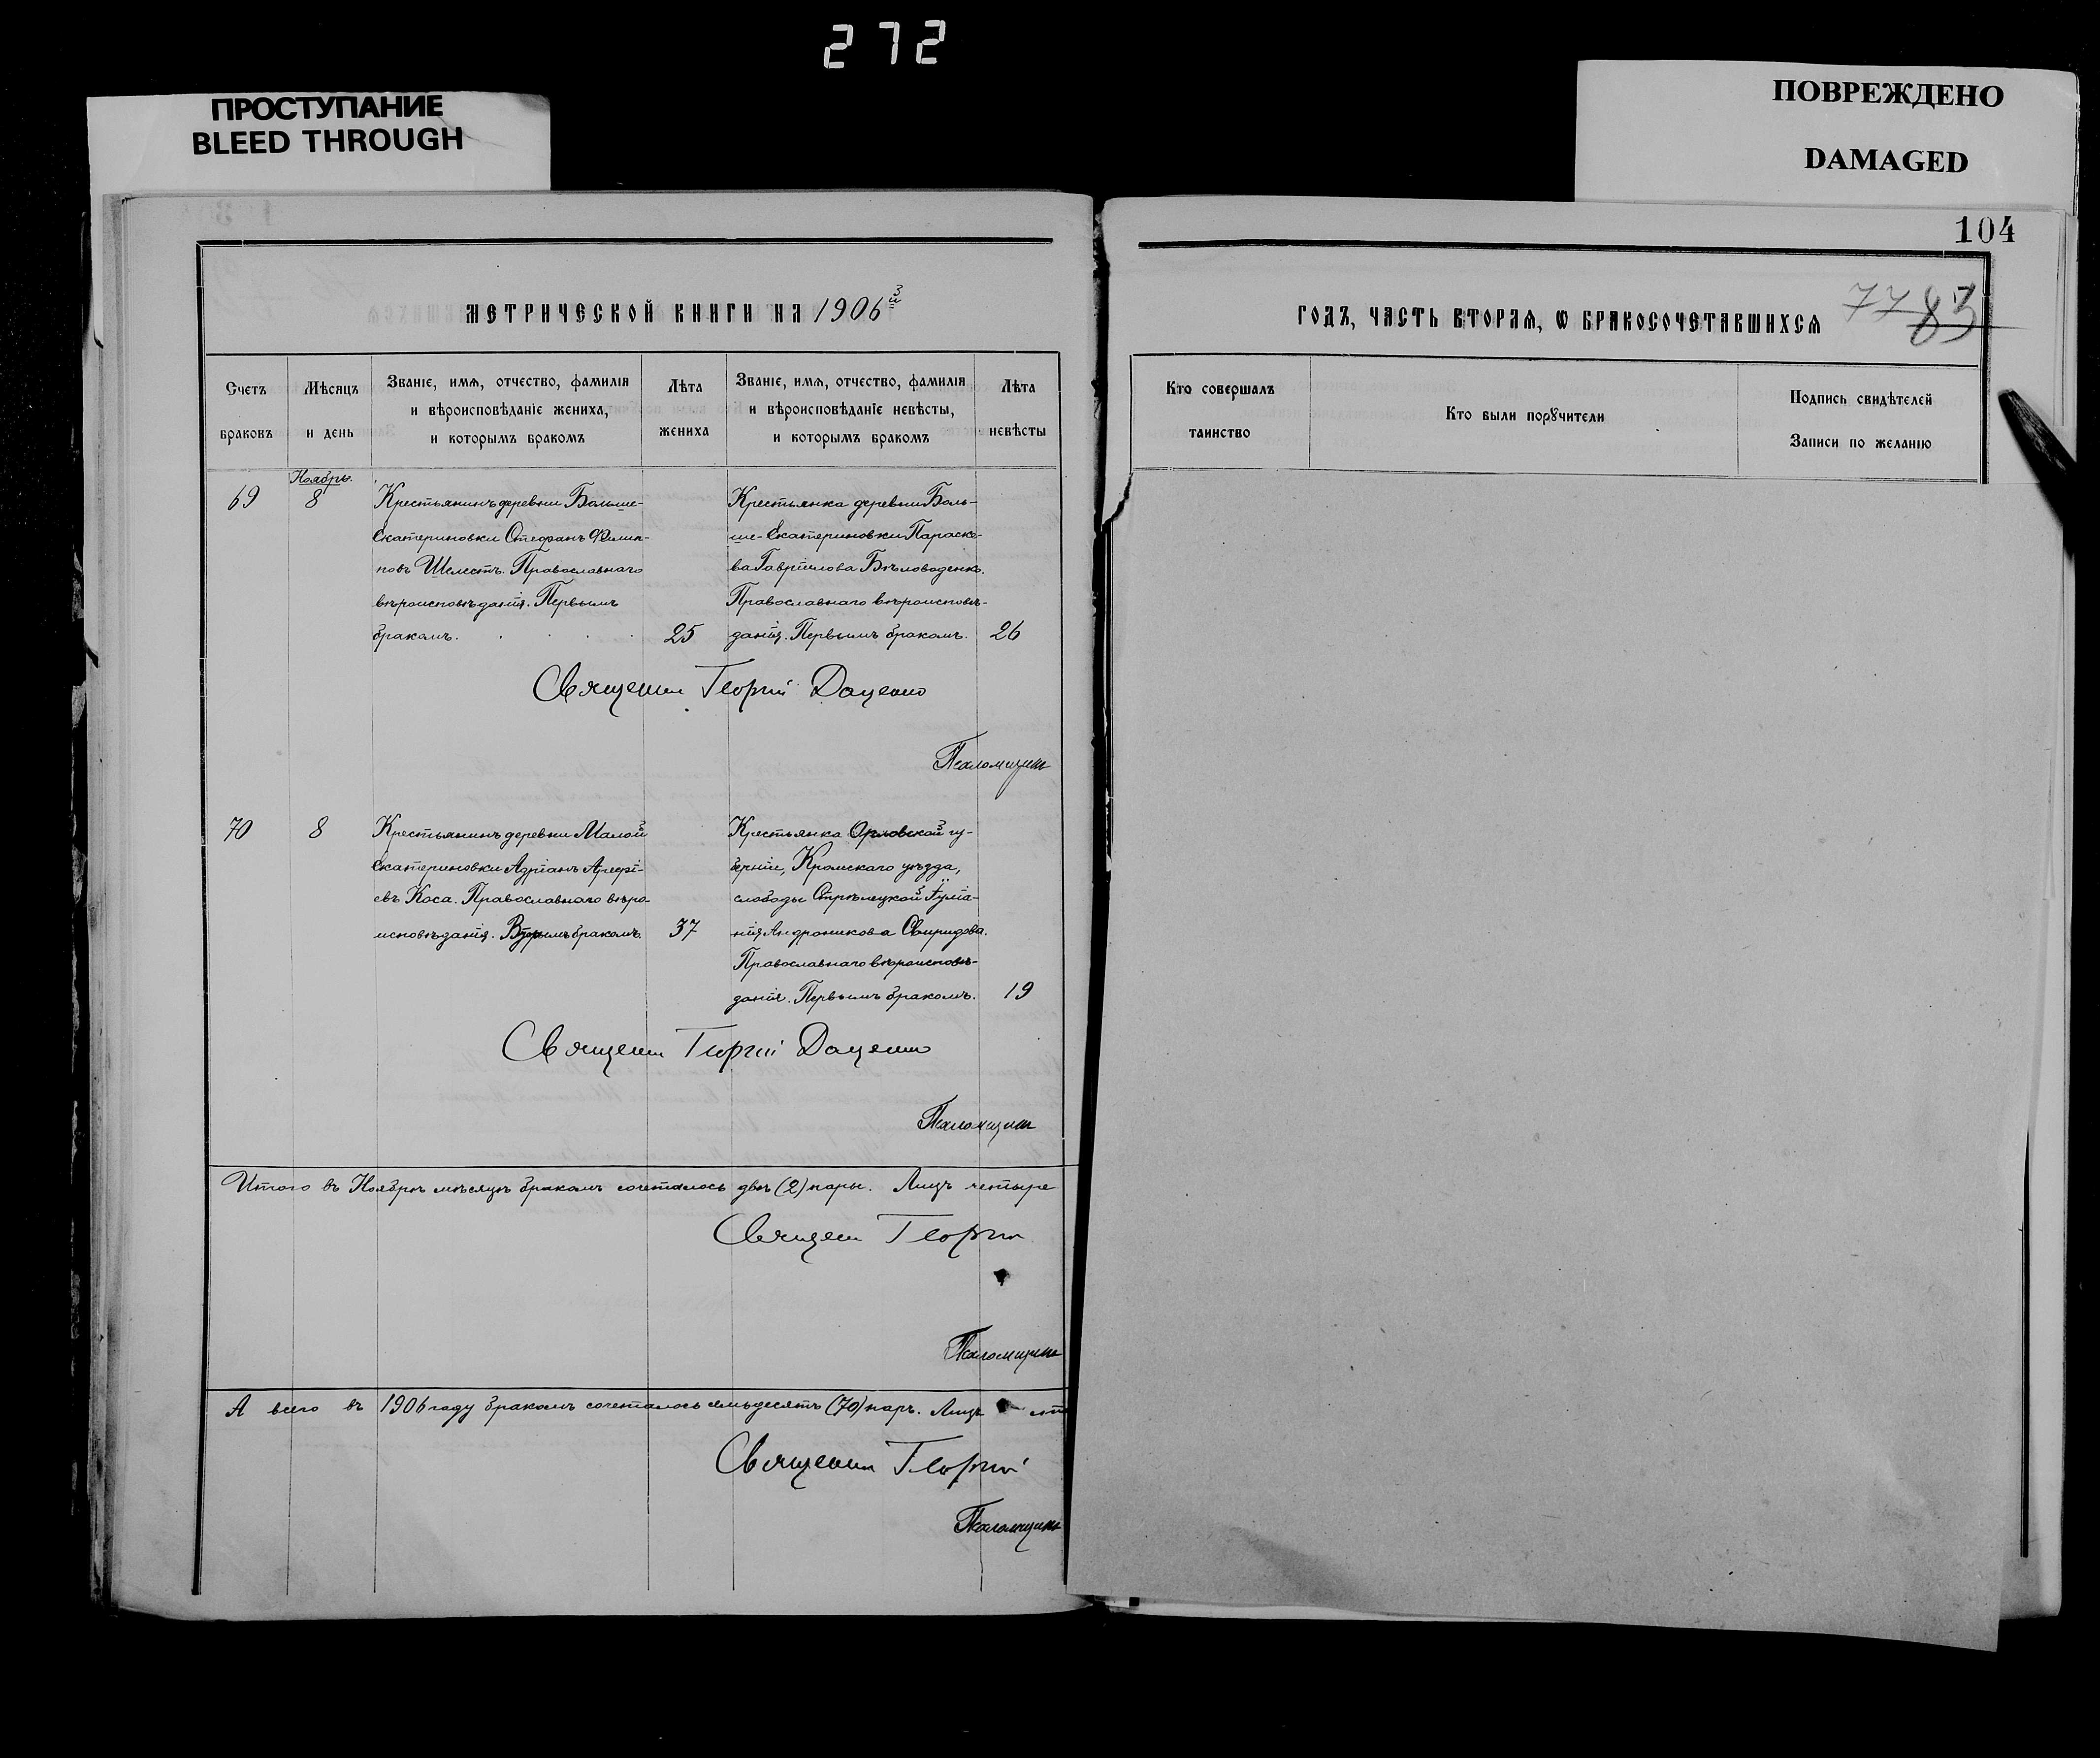 272
ПРОСТУПАНИЕ
BLEED THROUGH
ПОВРЕЖДЕНО
DAMAGED
104
МЕТРИЧЕСКОЙ КНИГИ НА 1906й
ГОДЪ, ЧАСТЬ ВТОРАЯ, Ѡ БРАКОСОЧЕТАВШИХСЯ
77 83
Счетъ браковъ
Мѣсяцъ и день
Званіе, имя, отчество, фамилія
и вѣроисповѣданіе жениха,
и которымъ бракомъ
Лѣта жениха
Званіе, имя, отчество, фамилія
и вѣроисповѣданіе невѣсты,
и которымъ бракомъ
Лѣта невѣсты
Кто совершалъ таинство
Кто были порꙋчители
Подпись свидѣтелей
Записи по желанію
Ноябрь.
69
8
Крестьянинъ деревни Больше-
Екатериновки Стефанъ Филип-
повъ Шелестъ. Православнаго
вѣроисповѣданія. Первымъ
бракомъ.
25
Крестьянка деревни Боль-
ше-Екатериновки Параске-
ва Гавріилова Бѣловоденко.
Православнаго вѣроисповѣ-
данія. Первымъ бракомъ.
26
Священи Георгій Даценко
Псаломщикъ
70
8
Крестьянинъ деревни Малой
Екатериновки Адріанъ
евъ Коса. Православнаго вѣро-
исповѣданія. Вторымъ бракомъ.
37
Крестьянка Орловской гу-
берніи, Кромскаго уѣзда,
слободы Стрѣлецкой Іуліа-
нія Андроникова Свиридова.
Православнаго вѣроисповѣ-
данія. Первымъ бракомъ.
19
Священи Георгій Даценко
Псаломщикъ
Итого въ Ноябрѣ мѣсяцѣ бракомъ сочеталось двѣ (2) пары. Лицъ четыре
Священи Георгій
Псаломщикъ
А всего въ 1906 году бракомъ сочеталось семьдесятъ (70) паръ. Лицъ
Священи Георгій
Псаломщикъ